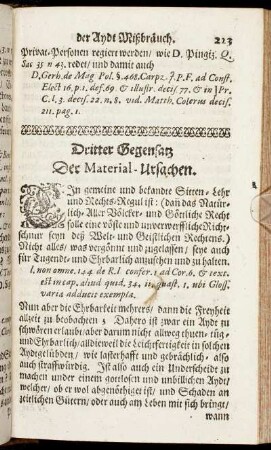 der Aydt Mißbräuch. 213
Privat-Personen regiert werden/ wie D. Pingiz. Q.
Sax 33 n 43. redet/ und damit auch
D. Gerh. de Mag Pol. §.468. Carpz. J. P. F. ad Const.
Elect 16. p. 1. def. 69 & illustr. decis 77. & in Pr.
C. l. 3. decis. 22. n. 8. vid. Matth. Colerus decis.
211. pag. 1.
Dritter Gegensatz
Der Material-Ursachen.
Ein gemeine und bekandte Sitten-Lehr
und Rechts-Regul ist: (dan das Natür-
lich-Aller Völcker- und Göttliche Recht
solle eine vöste und unverwerffliche Richt-
schnur seyn deß Welt- und Geistlichen Rechtens.)
Nicht alles/ was vergönnt und zugelassen/ seye auch
für Tugendt- und Ehrbarlich anzusehen und zu halten.
l. non omne. 144. de R. I. confer. 1. ad Cor. 6. & text.
est in cap. aliud quid. 34, 11. quæst. 1, ubi Gloss.
varia adducit exempla.
Nun aber die Ehrbarkeit mehrers/ dann die Freyheit
allzeit zu beobachten; Dahero ist zwar ein Aydt zu
schwören erlaubt/ aber darum nicht allweg eben/ tug-
und Ehrbarlich/ alldieweil die Leichtfertigkeit in solchen
Aydtgelübden/ wie lasterhafft und gebrächlich- also
auch straffwürdig. Ist also auch ein Underscheide zu
machen under einem gottlosen und unbillichen Aydt/
welcher/ ob er wol unbenöthiget ist/ und Schaden an
zeitlichen Gütern/ oder auch am Leben mit sich bringt/
wann